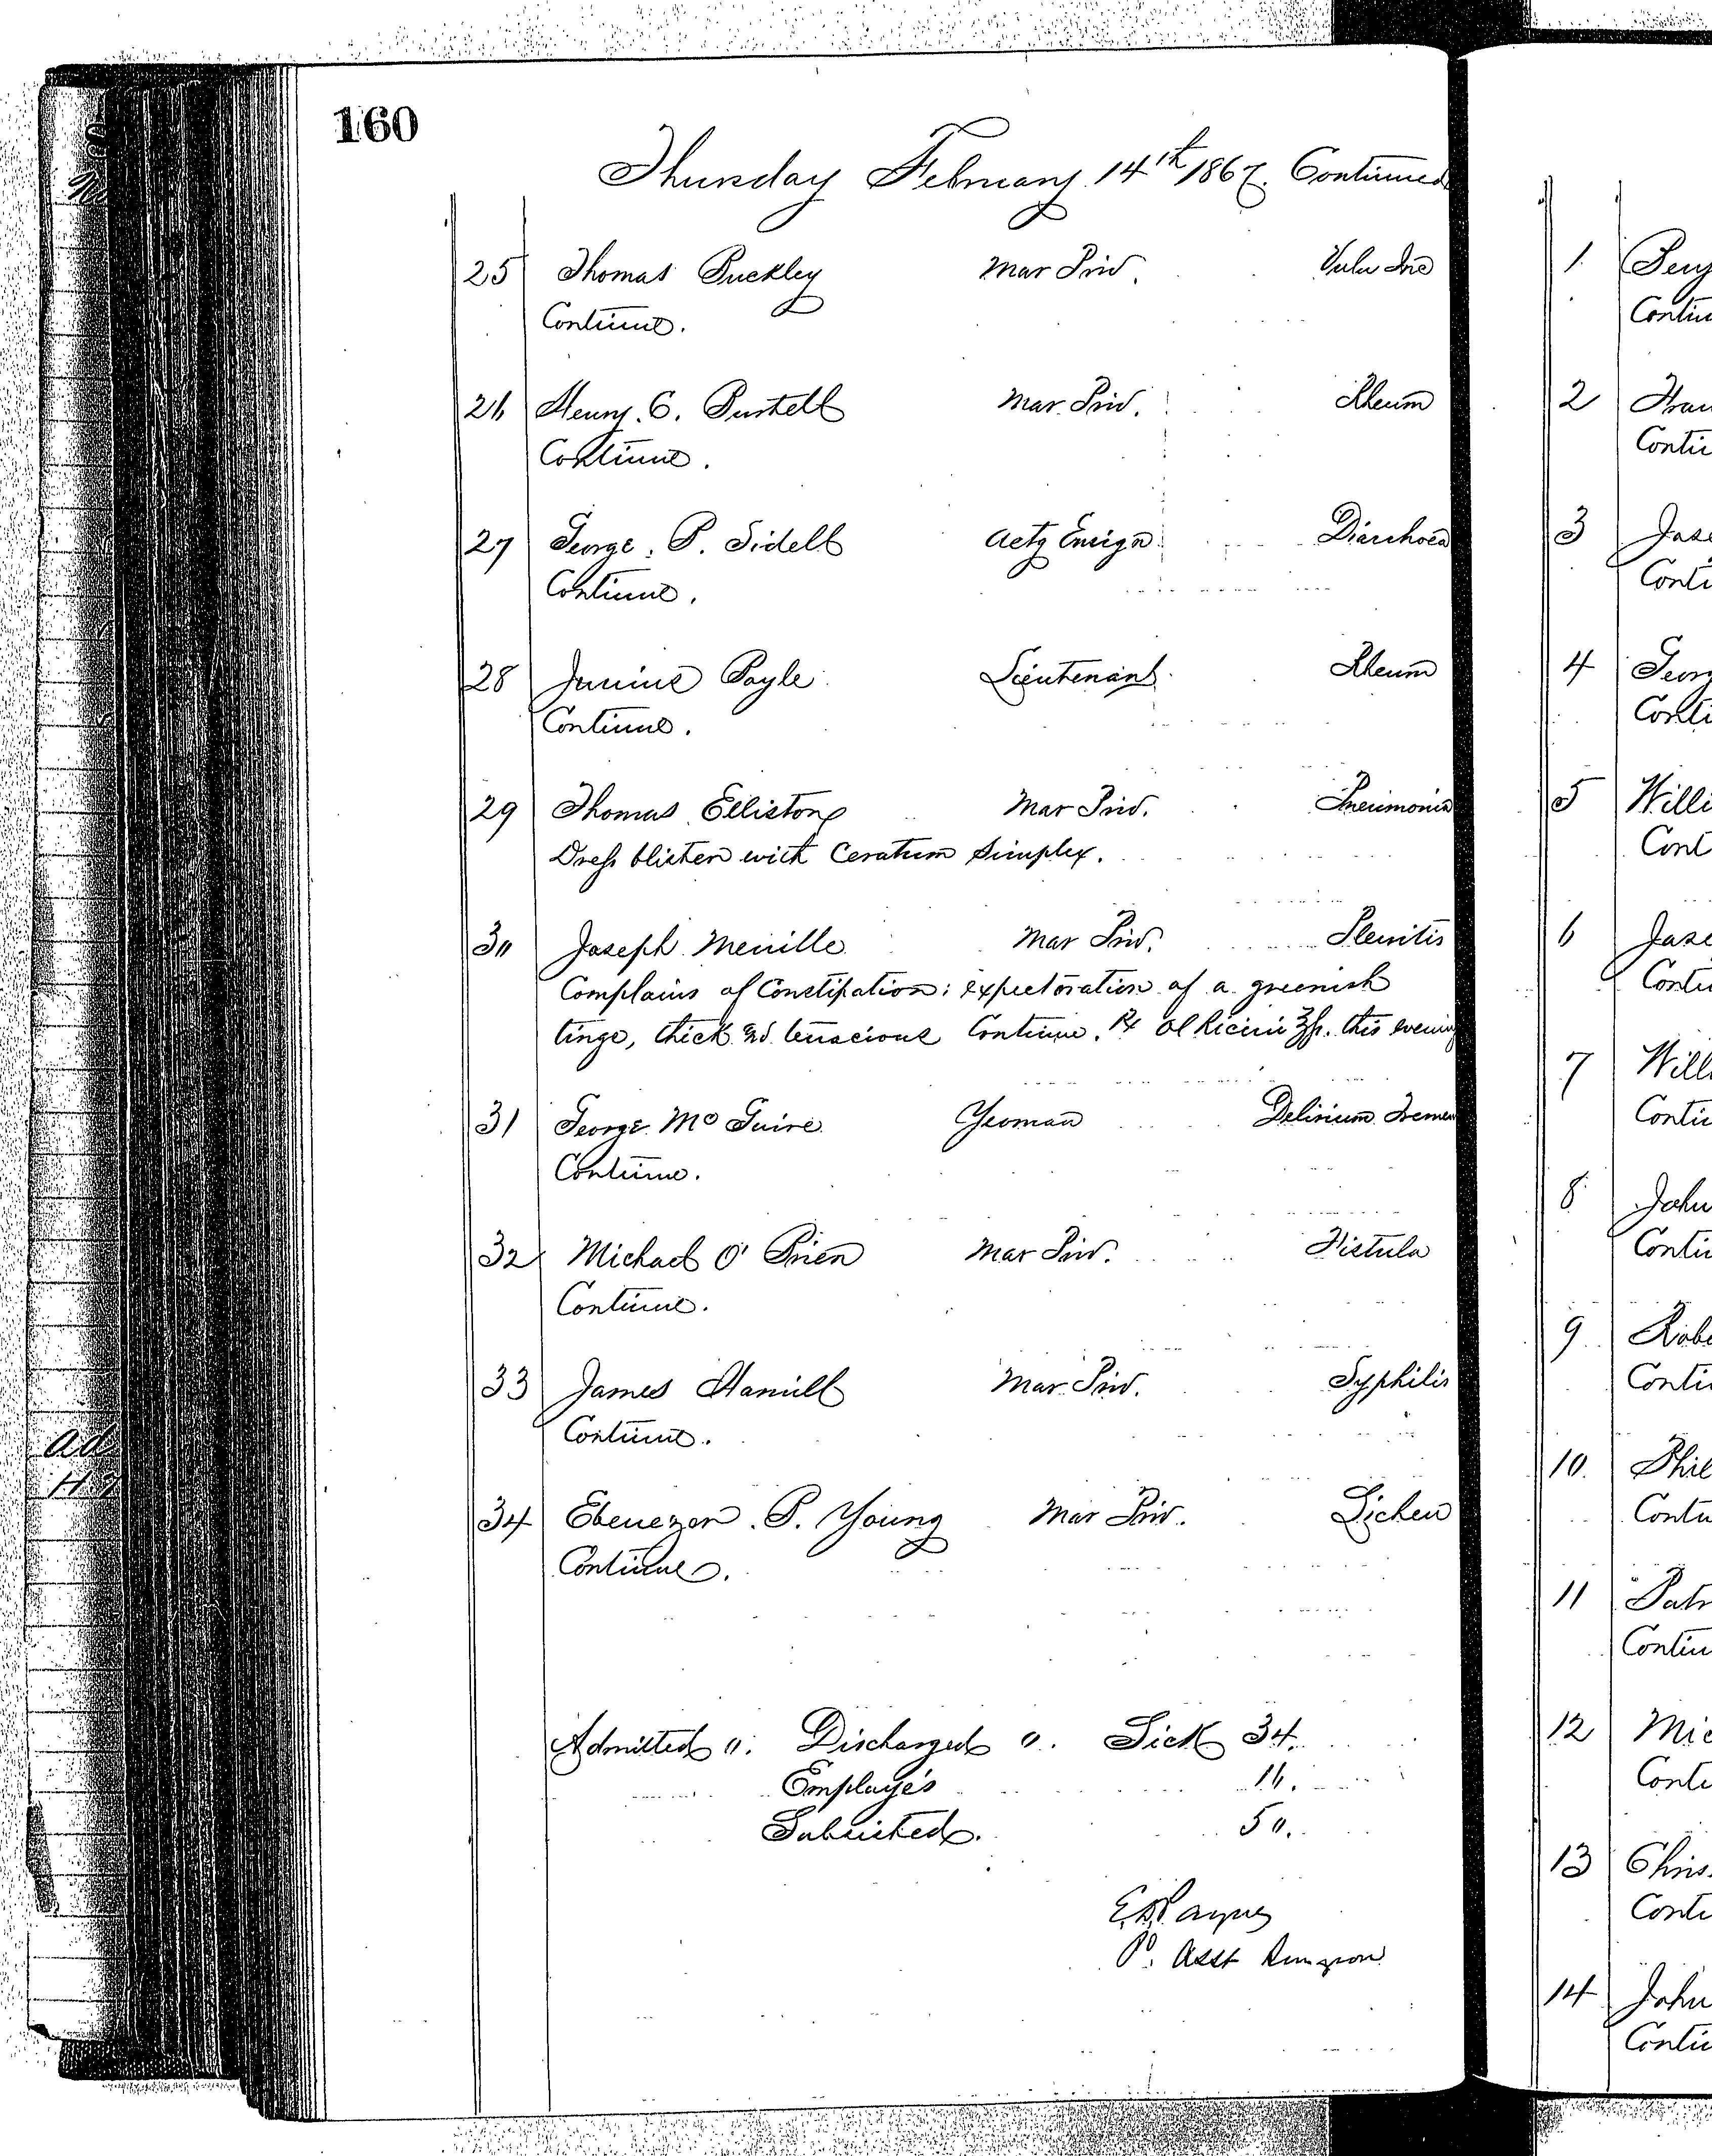 160
Thursday February 14th 1867. Continued
25 Thomas Buckley Mar Priv. Vuln Inc
Continue.
26 Henry. C. Burtell Mar. Priv. Rheum
Continue.
27 George. B. Sidell Actg Ensign Diarrhoea
Continue.
28 Junius Boyle Lieutenant Rheum
Continue.
29 Thomas Elliston Mar Priv. Pneumonia
Dress blister with Ceratum Simplex.
30 Joseph Merville Mar Priv. Pleuritis
Complains of Constipation: expectoration of a greenish
tinge, thick and tenacious Continue. Rx Ol Ricini ℥fs. this evening
31 George McGuire Yeoman Delirium Tremen
Continue.
32 Michael O'Brien Mar Priv. Fistula
Continue.
33 James Hamill Mar. Priv. Syphilis
Continue.
34 Ebenezer. P. Young Mar Priv. Lichen
Continue.
Admitted 0. Discharged 0. Sick 34.
Employés 16.
Subsisted. 50.
E.R. Payne
P. Asst Surgeon
1
Contin
2
Contin
3
Conti
4 Georg
Conti
5 Willi
Cont
6
Contin
7 Will
Contin
8 John
Contin
9 Robe
Contin
10. Phil
Contin
11 Patr
Contin
12 Mic
Conti
13 Chris
Conti
14 John
Contin